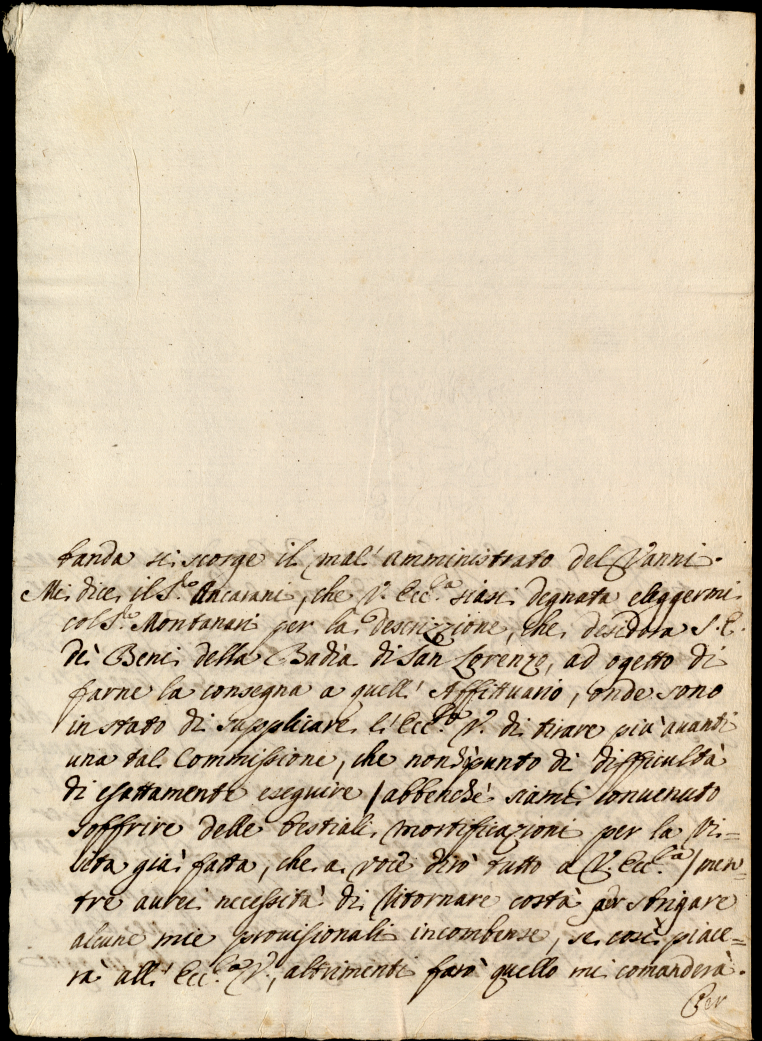 tanda si scorge il mal' amministrato del Vanni.
Mi dice il S.re Ancarani, che V. Ecc.a siasi degnata eleggermi
col S.re Montanari per la descrizzione, che desidera S. E.
dei Beni della Badia di San Lorenzo, ad ogetto di
farne la consegna a quell' Affittuario, onde sono
in stato di supplicare l'Ecc.za V. di tirare più avanti
una tal Commissione, che non punto di difficultà
di esattamente eseguire / abbenche siami convenuto
soffrire delle bestiali mortificazioni per la vi=
sita già fatta, che a voce dirò tutto a V. Ecc.za / men=
tre avrei necessità di ritornare costà per sbrigare
alcune mie provisionali incombense, se così piace=
rà all' Ecc.za V., altrimenti farò quello mi comanderà.
Per